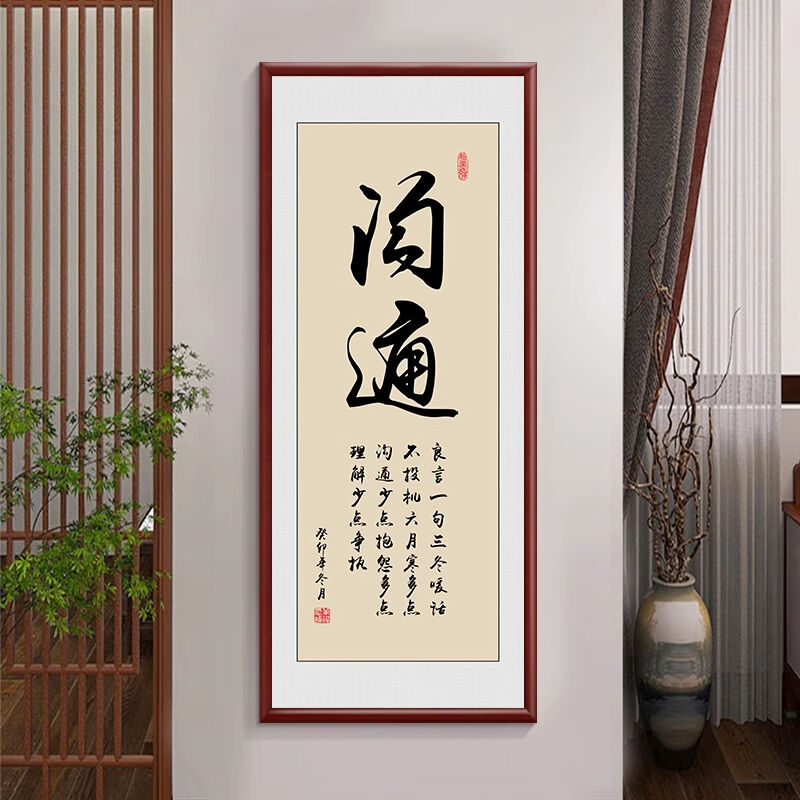 沟通
良言一句三冬暖话
不投机六月寒多点
沟通少点抱怨多点
理解少点争执
癸卯年冬月